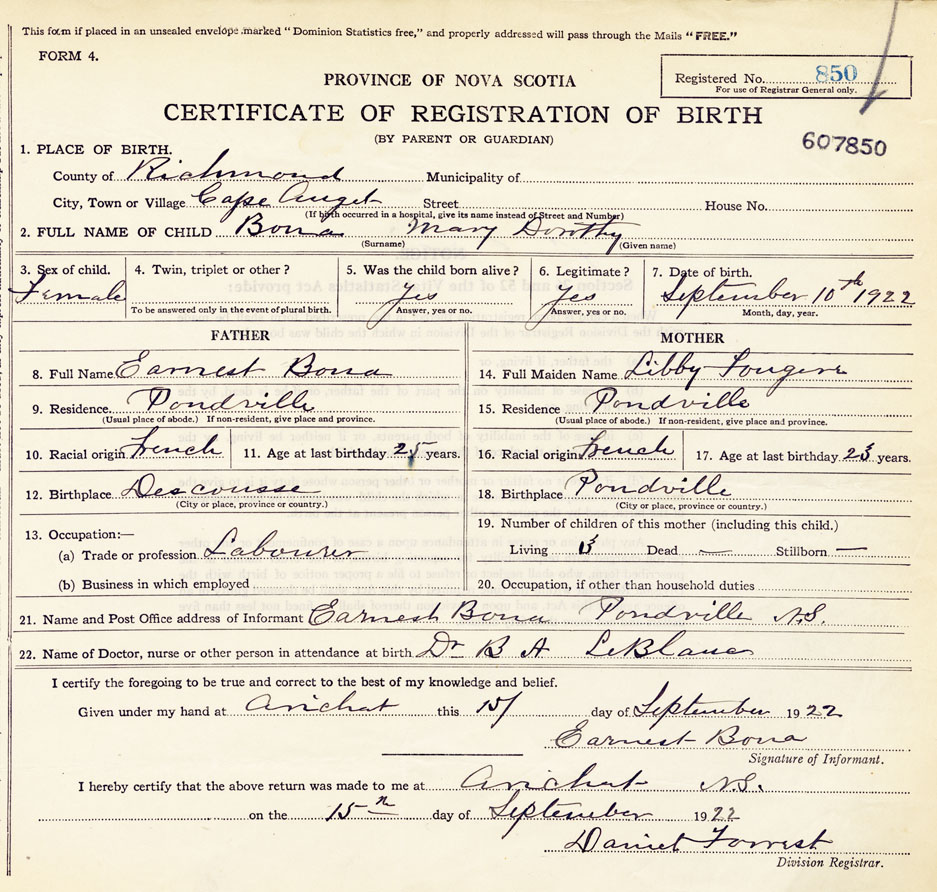 This form if placed in an unsealed envelope marked "Dominion Statistics free," and properly addressed will pass through the Mails "FREE."
FORM 4.
Registered No. 850
For use of Registrar General only.
PROVINCE OF NOVA SCOTIA
CERTIFICATE OF REGISTRATION OF BIRTH
(BY PARENT OR GUARDIAN)
607850
1. PLACE OF BIRTH.
County of Richmond Municipality of
City, Town or Village Cape Auget Street House No.
(If birth occurred in a hospital, give its name instead of Street and Number)
2. FULL NAME OF CHILD Bona Mary Dorithy
(Surname) (Given name)
3. Sex of child. 4. Twin, triplet or other? 5. Was the child born alive? 6. Legitimate? 7. Date of birth.
Female yes yes September 10th 1922
To be answered only in the event of plural birth. Answer, yes or no. Answer, yes or no. Month, day, year.
FATHER MOTHER
8. Full Name Earnest Bona 14. Full Maiden Name Libby Fougere
9. Residence Pondville 15. Residence Pondville
(Usual place of abode.) If non-resident, give place and province. (Usual place of abode.) If non-resident, give place and province.
10. Racial origin French 11. Age at last birthday 25 years. 16. Racial origin French 17. Age at last birthday 23 years.
12. Birthplace Descousse 18. Birthplace Pondville
(City or place, province or country.) (City or place, province or country.)
13. Occupation:— 19. Number of children of this mother (including this child.)
(a) Trade or profession Labourer Living Dead — Stillborn —
(b) Business in which employed 20. Occupation, if other than household duties
21. Name and Post Office address of Informant Earnest Bona Pondville N.S.
22. Name of Doctor, nurse or other person in attendance at birth Dr B A LeBlanc
I certify the foregoing to be true and correct to the best of my knowledge and belief.
Given under my hand at Arichat this 15/ day of September 1922
Earnest Bona
Signature of Informant.
I hereby certify that the above return was made to me at Arichat N.S.
on the 15th day of September 1922
Daniel Forrest
Division Registrar.